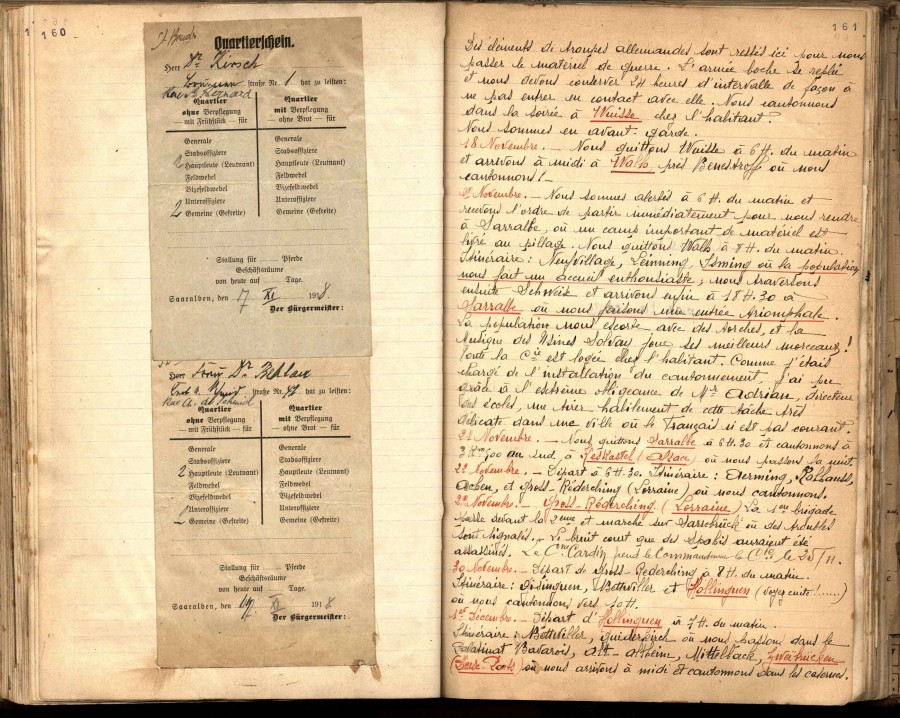 160
Quartierschein.
Herr Dr Kirsch
straße Nr. 1 hat zu leisten:
Quartier
ohne Verpflegung
— mit Frühstück — für
Quartier
mit Verpflegung
— ohne Brot — für
Generale
Stabsoffiziere
Hauptleute (Leutnant)
Feldwebel
Vizefeldwebel
Unteroffiziere
2 Gemeine (Gefreite)
Generale
Stabsoffiziere
Hauptleute (Leutnant)
Feldwebel
Vizefeldwebel
Unteroffiziere
Gemeine (Gefreite)
Stallung für — Pferde
Geschäftsräume
von heute auf — Tage.
Saaralben, den 17 XI 1918
Der Bürgermeister:
Herr Frau Dr
straße Nr. hat zu leisten:
Quartier
ohne Verpflegung
— mit Frühstück — für
Quartier
mit Verpflegung
— ohne Brot — für
Generale
Stabsoffiziere
2 Hauptleute (Leutnant)
Feldwebel
Vizefeldwebel
Unteroffiziere
Gemeine (Gefreite)
Generale
Stabsoffiziere
Hauptleute (Leutnant)
Feldwebel
Vizefeldwebel
Unteroffiziere
Gemeine (Gefreite)
Stallung für — Pferde
Geschäftsräume
von heute auf — Tage.
Saaralben, den XI 1918
Der Bürgermeister:
161
Des éléments de troupes allemandes sont restés ici pour nous
passer le matériel de guerre. L'armée boche se replie
et nous devons conserver 24 heures d'intervalle de façon à
ne pas entrer en contact avec elle. Nous cantonnons
dans la soirée à Wuisse chez l'habitant.
Nous sommes en avant-garde.
18 Novembre. — Nous quittons Wuisse à 6 H. du matin
et arrivons à midi à Walh près Benestroff où nous
cantonnons! —
Novembre. — Nous sommes alertés à 6 H. du matin et
recevons l'ordre de partir immédiatement pour nous rendre
à Sarralbe, où un camp important de matériel est
livré au pillage. Nous quittons Walh à 8 H. du matin.
Itinéraire: Neufvillage, Leinning, Insming où la population
nous fait un accueil enthousiaste, nous traversons
ensuite Schweix et arrivons enfin à 18 H. 30 à
Sarralbe où nous faisons une entrée triomphale.
La population nous escorte avec des torches, et la
Musique des Usines Solvay joue ses meilleurs morceaux!
Toute la Cie est logée chez l'habitant. Comme j'étais
chargé de l'installation du cantonnement, j'ai pu
grâce à l'extrême obligeance de Mr Adrian, directeur
des écoles, me tirer habilement de cette tâche très
délicate dans une ville où le Français n'est pas courant.
21 Novembre. — Nous quittons Sarralbe à 6 H. 30 et cantonnons à
3 Km 500 au sud, à Keskastel (Alsace) où nous passons la nuit.
22 Novembre. — Départ à 6 H. 30. Itinéraire: Oerming, Kalhauss,
Achen, et Gross-Réderching (Lorraine) où nous cantonnons.
Novembre. — Gross-Réderching (Lorraine) La 1ère brigade
passe devant la 2ème et marche sur Sarrebrück où des troubles
sont signalés... Le bruit court que des Spahis auraient été
assassinés. Le Cne Cardin prend le Commandement de la Cie le 25/11.
30 Novembre. — Départ de Gross-Réderching à 8 H. du matin.
Itinéraire: Dinguen, Bettwiller et Hollinguen (voyez cuite!.....)
où nous cantonnons vers 10 H.
1er Décembre. — Départ d'Hollinguen à 7 H. du matin.
Itinéraire: Bettwiller, Guiderkirch où nous passons dans le
Palatinat Bavarois, Alt-Altheim, Mittelbach, Zweibrücken
(Deux-Ponts) où nous arrivons à midi et cantonnons dans les casernes.